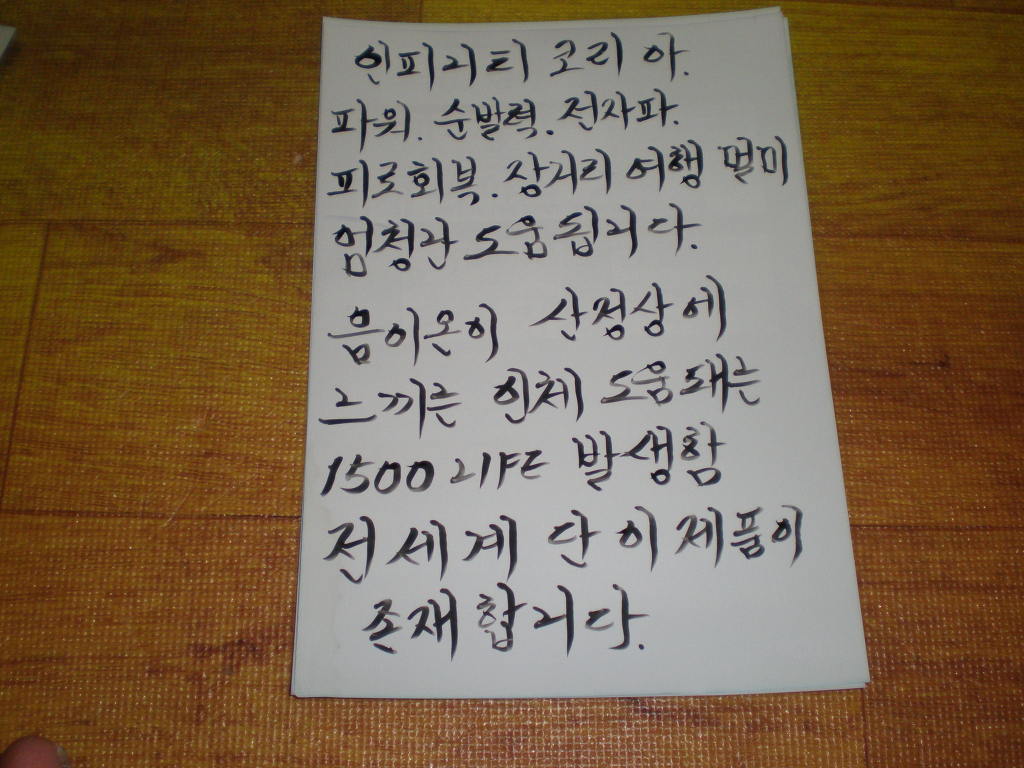 인피니티 코리아.
파워. 순발력. 전자파.
피로회복. 장거리 여행 멀미
엄청난 도움됩니다.
음이온이 산정상에
느끼는 인체 도움돼는
1500 발생함
전세계 단 이제품이
존재합니다.